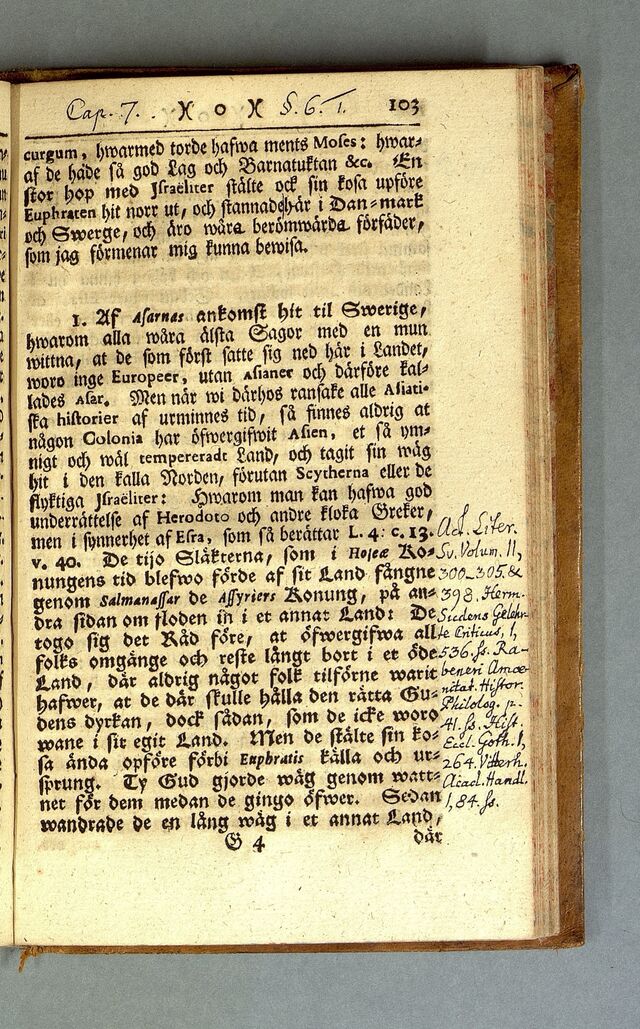 Cap. 7. )( o )( §. 6. 1. 103
curgum, hwarmed torde hafwa ments Moses: hwar-
af de håde så god Lag och Barnatuktan &c. En
stor hop med Israëliter stälte ock sin kosa upföre
Euphraten hit norr ut, och stannade här i Dan-mark
och Swerge, och äro wåra berömwärda förfäder,
som jag förmenar mig kunna bewisa.
1. Af Asarnas ankomst hit til Swerige,
hwarom alla wåra älsta Sagor med en mun
wittna, at de som först satte sig ned här i Landet,
woro inge Europeer, utan Asianer och därföre kal-
lades Asar. Men när wi därhos ransake alle Asiati-
ska historier af urminnes tid, så finnes aldrig at
någon Colonia har öfwergifwit Asien, et så ym-
nigt och wäl tempereradt Land, och tagit sin wäg
hit i den kalla Norden, förutan Scytherna eller de
flyktiga Israëliter: Hwarom man kan hafwa god
underrättelse af Herodoto och andre kloka Greker,
men i synnerhet af Esra, som så berättar L. 4. c. 13.
v. 40. De tijo Släkterna, som i Hoseæ Ko-
nungens tid blefwo förde af sit Land fångne
genom Salmanassar de Assyriers Konung, på an-
dra sidan om floden in i et annat Land: De
togo sig det Råd före, at öfwergifwa all
folks omgänge och reste långt bort i et öde
Land, där aldrig något folk tilförne warit
hafwer, at de där skulle hålla den rätta Gu-
dens dyrkan, dock sådan, som de icke woro
wane i sit egit Land. Men de stälte sin ko-
sa ända opföre förbi Euphratis källa och ur-
sprung. Ty Gud gjorde wäg genom watt-
net för dem medan de gingo öfwer. Sedan
wandrade de en lång wäg i et annat Land,
G 4 där
Act. Liter.
Sv. Volum. II,
300-305. &
398. Herm.
Sudens Gelehr-
te Criticus, I,
536. ss. Ra-
beneri Amœ-
nitat. Histor.
Philolog. p.
41. ss. Hist.
Eccl. Goth. I,
264. Vitterh.
Acad. Handl.
1, 84. ss.